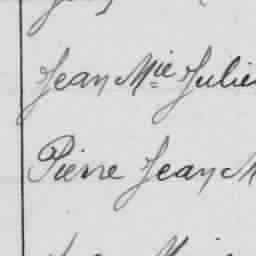 Jean Mie Julie
Pierre Jean M